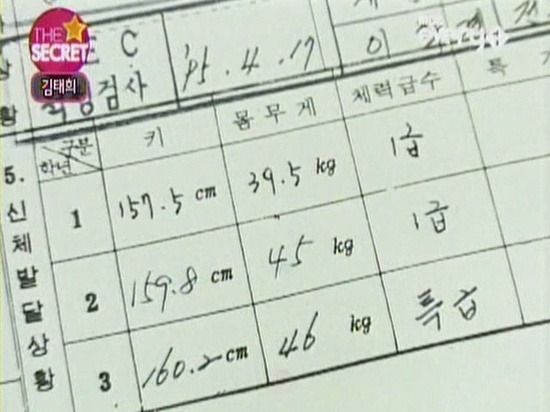 THE
SECRET
김태희
C
검사
'95. 4. 17
황
구분
학년
키
몸무게
체력급수
특
5.
신체발달상황
1
157.5 cm
39.5 kg
1급
2
159.8 cm
45 kg
1급
3
160.2 cm
46 kg
특급